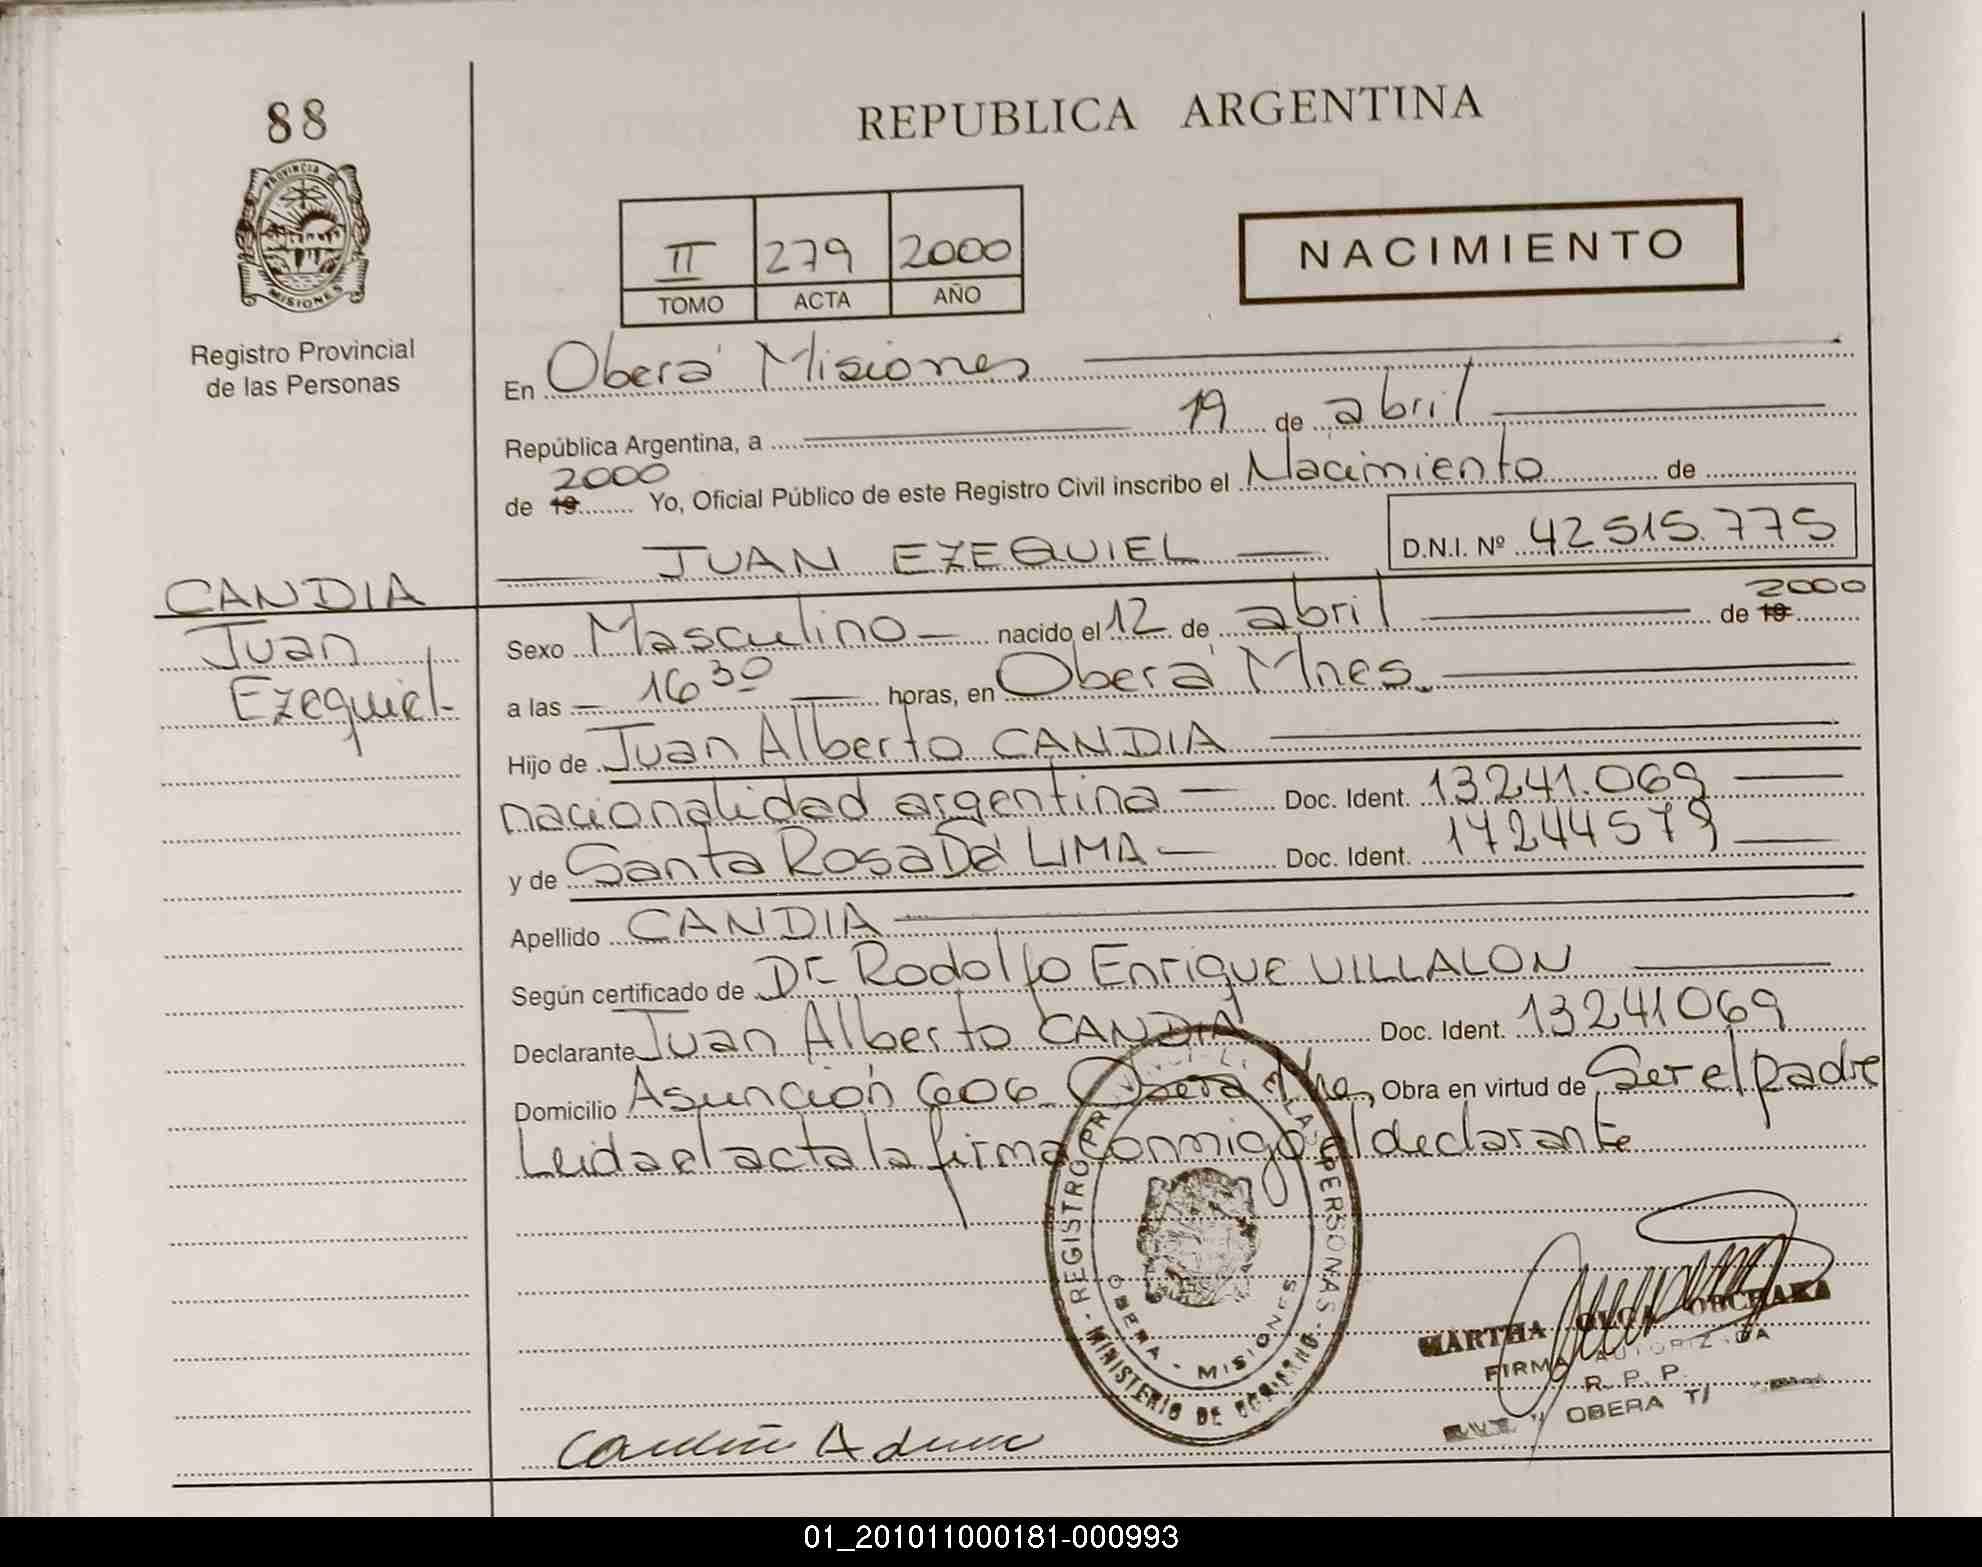 88
REPUBLICA ARGENTINA
PROVINCIA D
MISIONES
Registro Provincial
de las Personas
II 279 2000
TOMO ACTA AÑO
NACIMIENTO
En Oberá Misiones
República Argentina, a 19 de abril
2000
de 19 Yo, Oficial Público de este Registro Civil inscribo el Nacimiento de
JUAN EZEQUIEL D.N.I. Nº 42515.775
CANDIA
Juan
Ezequiel
2000
Sexo Masculino nacido el 12 de abril de 19
a las 16 30 horas, en Oberá Mnes.
Hijo de Juan Alberto CANDIA
nacionalidad argentina Doc. Ident. 13241.069
y de Santa Rosa Da LIMA Doc. Ident. 17244579
Apellido CANDIA
Según certificado de Dr Rodolfo Enrique VILLALON
Declarante Juan Alberto CANDIA Doc. Ident. 13241069
Domicilio Asunción 606 Oberá Mnes Obra en virtud de Ser el padre
Leida el acta la firma conmigo el declarante
REGISTRO PROVINCIAL DE LAS PERSONAS
OBERA - MISIONES
MINISTERIO DE GOBIERNO
MARTHA OLGA
FIRMA AUTORIZADA
R. P. P.
OBERA
01_201011000181-000993